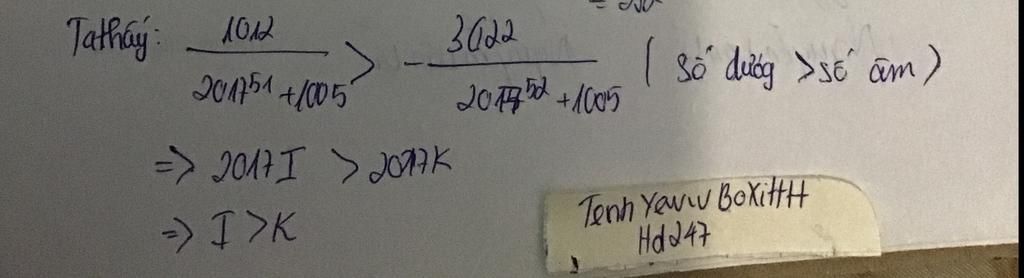 Ta thấy: 1012 / 2017^51 + 1005 > - 3022 / 2017^52 + 1005 ( Số dương > số âm )
=> 2017I > 2017K
=> I > K
Tenh Yewu BoXiHH
Hd247